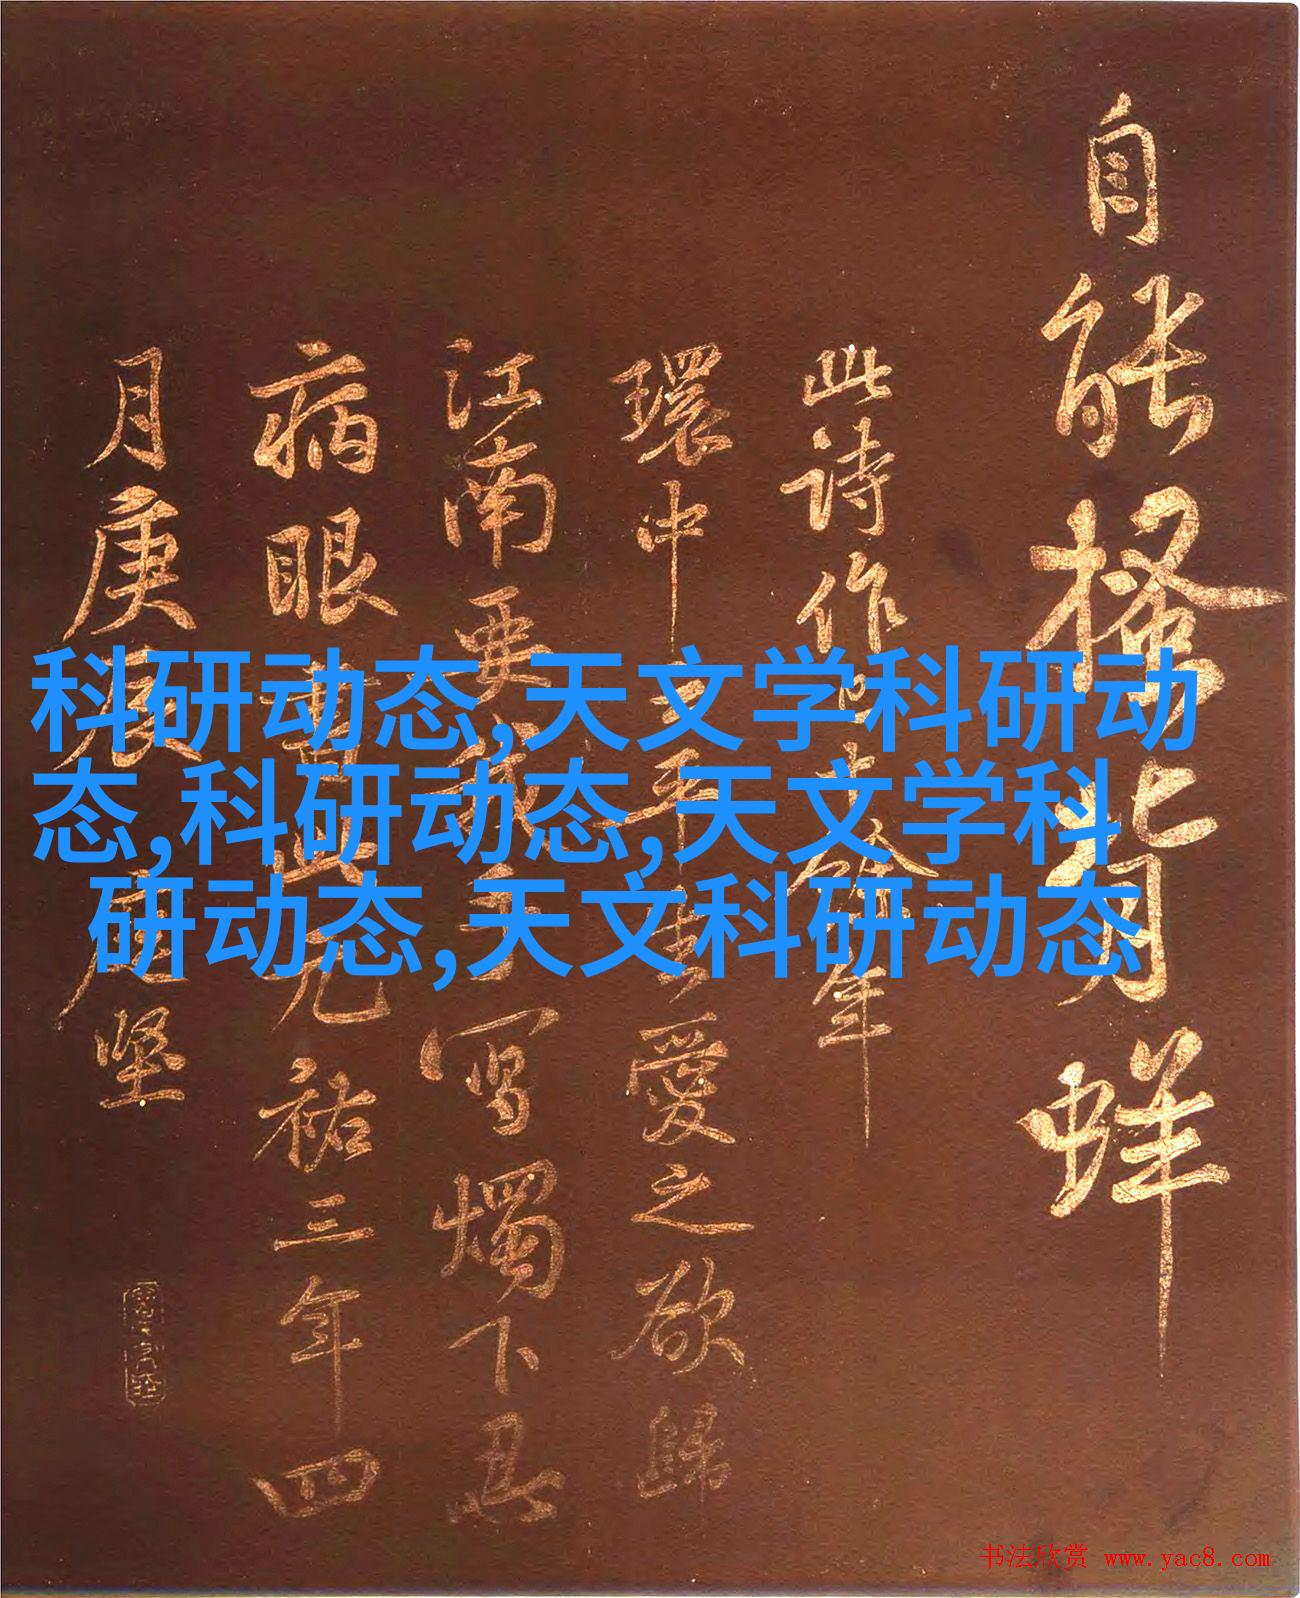 自能搔背痒
此诗作
餘年
環中
年
愛之欲歸
江南要
寫燭下忍
病眼書此元祐三年四
月庚辰庭堅
科研动态,天文学科研动
态,科研动态,天文学科
研动态,天文科研动态
书法欣赏 www.yac8.com